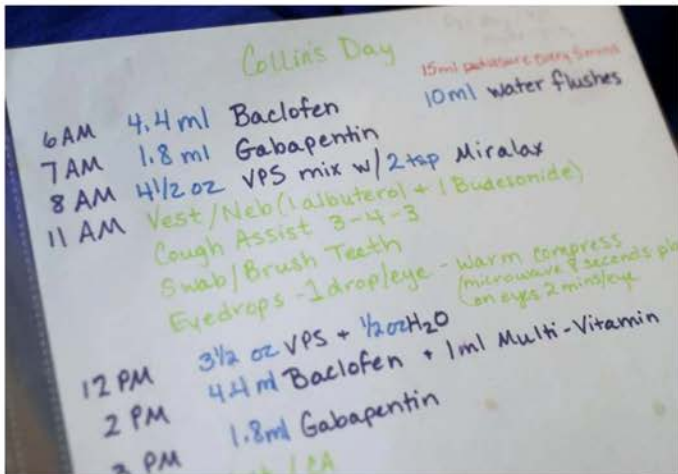 Collin's Day
15ml pediasure every 5 mins
10ml water flushes
6 AM 4.4 ml Baclofen
7 AM 1.8 ml Gabapentin
8 AM 4 1/2 oz VPS mix w/ 2 tsp Miralax
11 AM Vest/Neb (1 albuterol + 1 Budesonide)
Cough Assist 3-4-3
Swab/Brush Teeth
Eyedrops - 1 drop/eye - warm compress
(microwave 8 seconds
on eyes 2 mins/eye
12 PM 3 1/2 oz VPS + 1/2 oz H2O
2 PM 4.4 ml Baclofen + 1ml Multi-Vitamin
3 PM 1.8ml Gabapentin